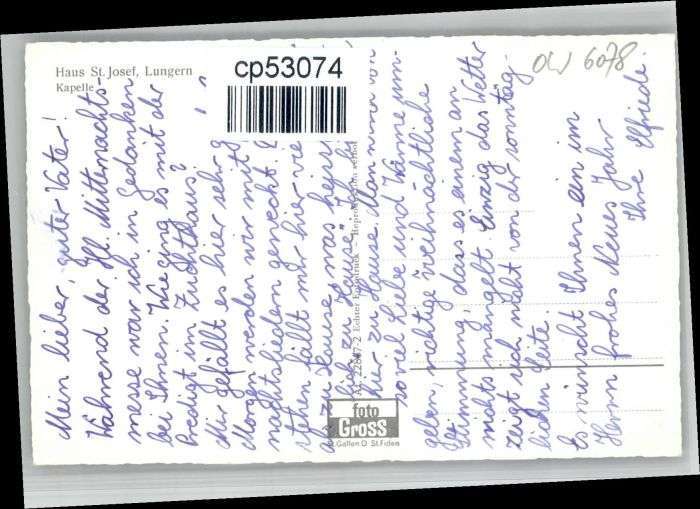 Haus St. Josef, Lungern
Kapelle
cp53074
OW 6078
Mein lieber, guter Vater!
Während der Hl. Mitternachts-
messe war ich in Gedanken
bei Ihnen. Wie ging es mit der
Predigt im Zuchthaus?
Mir gefällt es hier sehr
Morgen werden wir mit
nachtsliedern geweckt.
stehen fällt mir hier
zu Hause, was heisst
zu Hause",
hier zu Hause. Man wird von
so viel Liebe und Wärme um-
geben, richtige weihnächtliche
Stimmung, dass es einem an
nichts mangelt. Einzig das Wetter
zeigt sich nicht von der sonntäg-
lichen Seite.
Es wünscht Ihnen ein im
Herrn frohes Neues Jahr
Ihre Elfriede.
Nr. 22867-2 Echter Fotodruck — Reproduktion verboten
foto
Gross
St. Gallen O St. Fiden